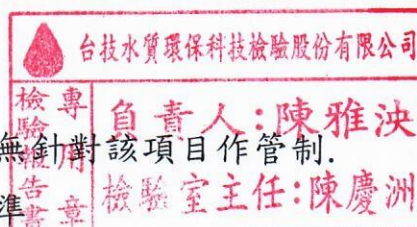 台技水質環保科技檢驗股份有限公司
檢驗報告書
專用章
負責人：陳雅泱
無針對該項目作管制.
檢驗室主任：陳慶洲
準